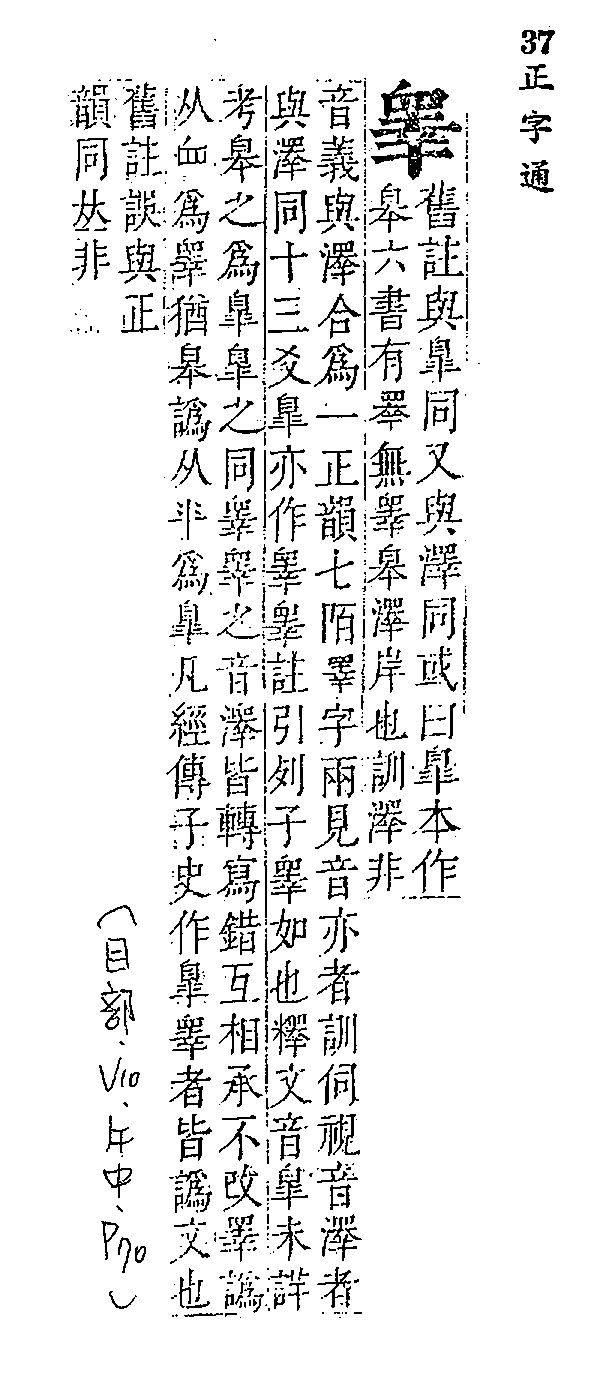 37正字通
睾
舊註與臯同又與澤同或曰臯本作
皋六書有睪無睾皋澤岸也訓澤非
音義與澤合爲一正韻七陌睪字兩見音亦者訓伺視音澤者
與澤同十三爻臯亦作睾睾註引列子睾如也釋文音臯未詳
考皋之爲臯臯之同睾睾之音澤皆轉寫錯互相承不改睪譌
从血爲睾猶皋譌从半爲臯凡經傳子史作臯睾者皆譌文也
舊註誤與正
韻同𠀤非
(目部、V10、午中、P70)